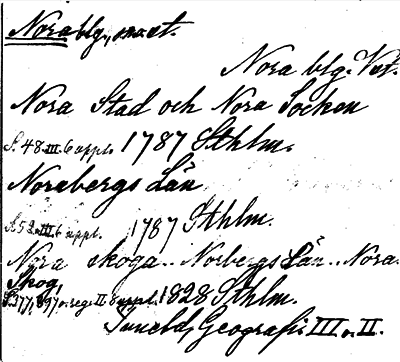 Norablg., sn. et.
Nora blg. Vet.
Nora Stad och Nora Socken
S. 48. III. 6 uppl. 1787 Sthlm.
Norabergs Län
S. 52. III. 6 uppl. 1787 Sthlm.
Nora skoga.. Norbergs Län.. Nora
Skog,
S. 377, 397 o. reg. II. 8 uppl. 1828 Sthlm.
Tunelds Geografi III o. II.